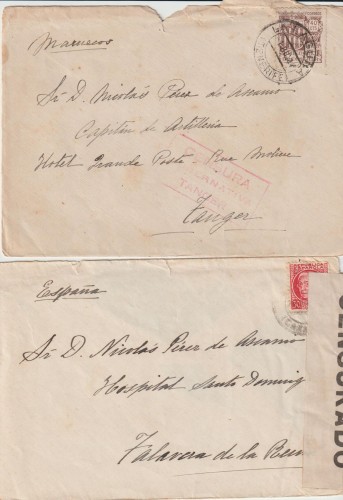 Marruecos
Sr D. Nicolás Pérez de Ascanio
Capitán de Artillería
Hotel Grande Poste Rue Molière
Tanger
CENSURA
TANGER
España
Sr D. Nicolás Pérez de Ascanio
Hospital Santo Doming
Talavera de la Rein
CENSURADO